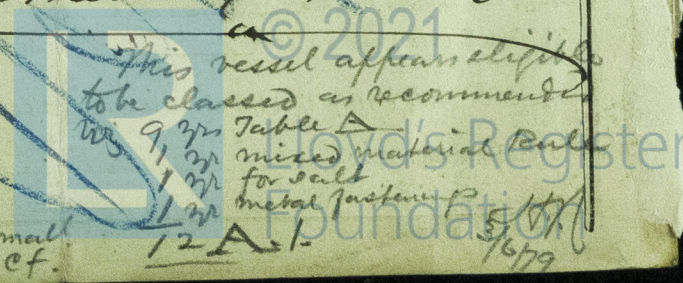 © 2021
Lloyd's Register
Foundation
This vessel appears eligible
to be classed as recommended
viz 9 yrs Table A
1 yr mixed material Rule
1 yr for salt
1 yr metal fastenings
12 A.1.
5/6/79
mall
cf.